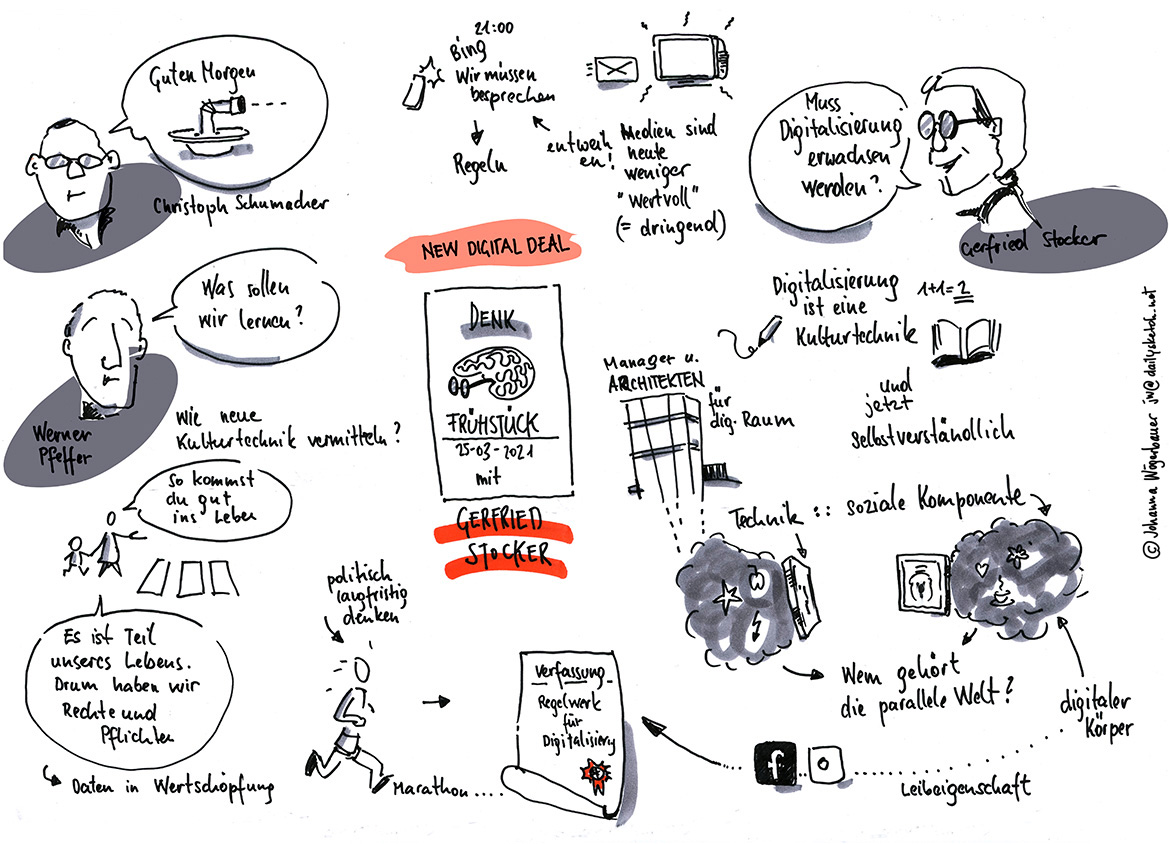 Guten Morgen
Christoph Schumacher
21:00
Bing
Wir müssen
besprechen
Regeln
entweih
en!
Medien sind
heute
weniger
"wertvoll"
(= dringend)
Muss
Digitalisierung
erwachsen
werden?
Gerfried Stocker
NEW DIGITAL DEAL
DENK
FRÜHSTÜCK
25-03-2021
mit
GERFRIED
STOCKER
Was sollen
wir lernen?
Werner
Pfeffer
Wie neue
Kulturtechnik vermitteln?
So kommst
du gut
ins Leben
Es ist Teil
unseres Lebens.
Drum haben wir
Rechte und
Pflichten
Daten in Wertschöpfung
Digitalisierung
ist eine
Kulturtechnik
1+1=2
und
jetzt
selbstverständlich
Manager u.
ARCHITEKTEN
für
dig. Raum
Technik :: soziale Komponente
Wem gehört
die parallele Welt?
digitaler
Körper
politisch
langfristig
denken
Marathon....
Verfassung
Regelwerk
für
Digitalisierg
f
Leibeigenschaft
© Johanna Wögerbauer jw@dailysketch.net